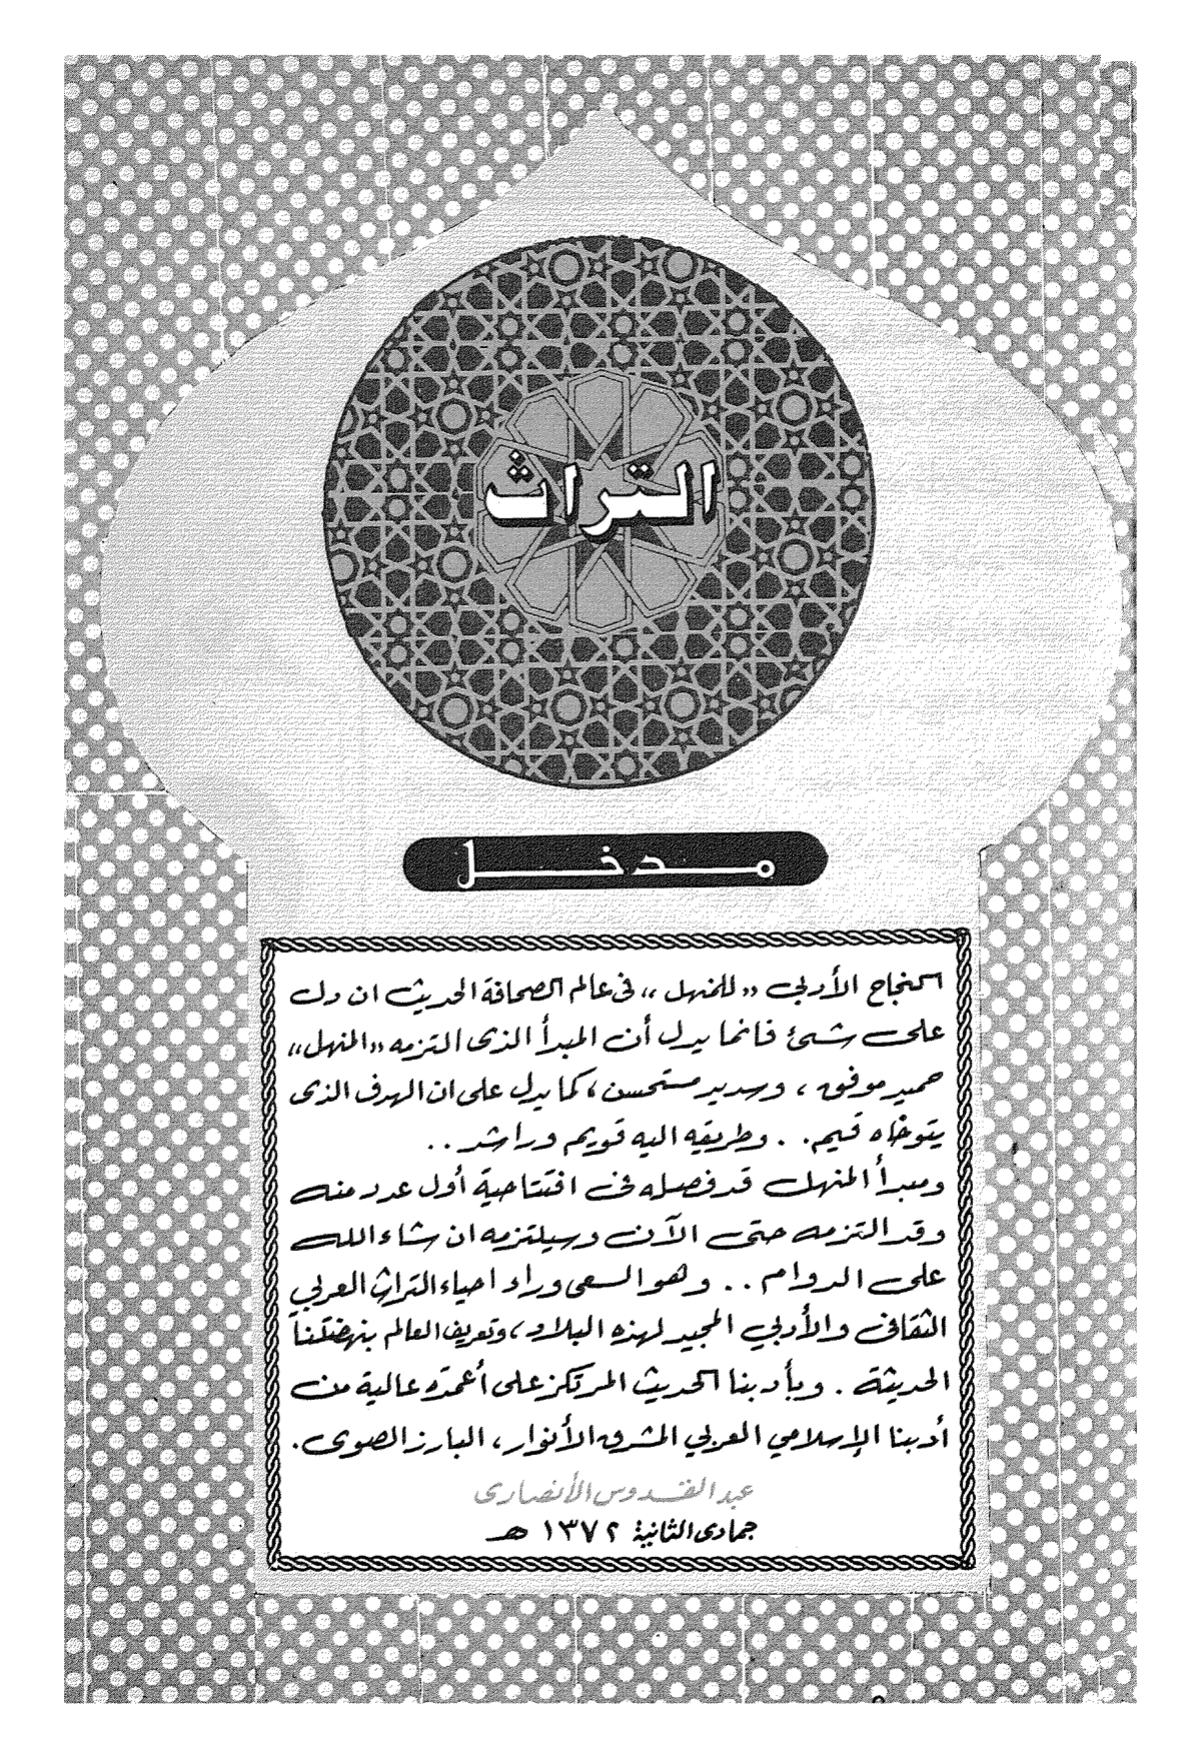 التراث
مدخل
النجاح الأدبي «للمنهل» في عالم الصحافة الحديث ان دل
على شئ فانما يدل أن المبدأ الذي التزمه «المنهل»
حميد موفق، وسديد مستحسن، كما يدل على ان الهدف الذي
يتوخاه قيم. . وطريقه اليه قويم وراشد . .
ومبدأ المنهل قد فصله في افتتاحية أول عدد منه
وقد التزمه حتى الآن وسيلتزمه ان شاء الله
على الدوام . . وهو السعي وراء احياء التراث العربي
الثقافي والأدبي المجيد لهذه البلاد، وتعريف العالم بنهضتنا
الحديثة . وبأدبنا الحديث المرتكز على أعمدة عالية من
أدبنا الإسلامي العربي المشرق الأنوار، البارز الصوى.
عبد القدوس الأنصاري
جمادى الثانية ١٣٧٢ هـ